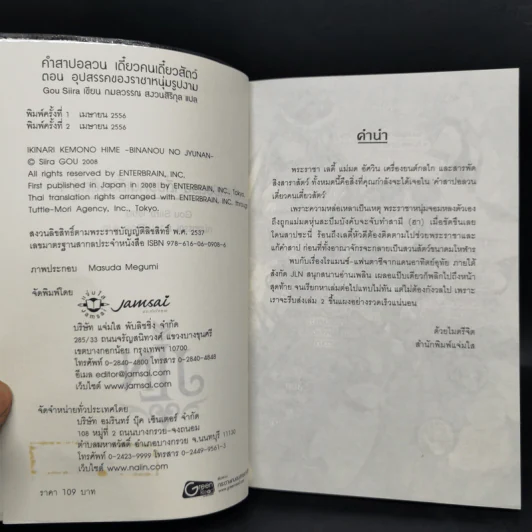 คำสาปอลวน เดี๋ยวคนเดี๋ยวสัตว์
ตอน อุปสรรคของราชาหนุ่มรูปงาม
Gou Siira เขียน กมลวรรณ สงวนสิริกุล แปล
พิมพ์ครั้งที่ 1 เมษายน 2556
พิมพ์ครั้งที่ 2 เมษายน 2556
IKINARI KEMONO HIME -BINANOU NO JYUNAN-
© Siira GOU 2008
All rights reserved by ENTERBRAIN, INC.
First published in Japan in 2008 by ENTERBRAIN, INC., Tokyo.
Thai translation rights arranged with ENTERBRAIN, INC. through
Tuttle-Mori Agency, Inc., Tokyo.
สงวนลิขสิทธิ์ตามพระราชบัญญัติลิขสิทธิ์ พ.ศ. 2537
เลขมาตรฐานสากลประจำหนังสือ ISBN 978-616-06-0908-6
ภาพประกอบ Masuda Megumi
จัดพิมพ์โดย
jamsai
บริษัท แจ่มใส พับลิชชิ่ง จำกัด
285/33 ถนนจรัญสนิทวงศ์ แขวงบางขุนศรี
เขตบางกอกน้อย กรุงเทพฯ 10700
โทรศัพท์ 0-2840-4800 โทรสาร 0-2840-4848
อีเมล editor@jamsai.com
เว็บไซต์ www.jamsai.com
จัดจำหน่ายทั่วประเทศโดย
บริษัท อมรินทร์ บุ๊ค เซ็นเตอร์ จำกัด
108 หมู่ที่ 2 ถนนบางกรวย-จงถนอม
ตำบลมหาสวัสดิ์ อำเภอบางกรวย จ.นนทบุรี 11130
โทรศัพท์ 0-2423-9999 โทรสาร 0-2449-9561-3
เว็บไซต์ www.naiin.com
ราคา 109 บาท
Green
คำนำ
พระราชา เลดี้ แม่มด อัศวิน เครื่องยนต์กลไก และสารพัด
สิงสาราสัตว์ ทั้งหมดนี้คือสิ่งที่คุณกำลังจะได้เจอใน 'คำสาปอลวน
เดี๋ยวคนเดี๋ยวสัตว์'
เพราะความหล่อเหลาเป็นเหตุ พระราชาหนุ่มจอมหลงตัวเอง
ถึงถูกแม่มดหนุ่มสะบึมบังคับจะจับทำสามี (ฮา) เมื่อขัดขืนเลย
โดนสาปซะนี่ ร้อนถึงเลดี้หัวดีต้องคิดตามไปช่วยพระราชาและ
แก้คำสาป ก่อนที่ทั้งอาณาจักรจะกลายเป็นสวนสัตว์ขนาดมโหฬาร
พบกับเรื่องโรแมนซ์-แฟนตาซีจากแดนอาทิตย์อุทัย ภายใต้
สังกัด JLN สนุกสนานอ่านเพลิน เผลอแป๊บเดียวก็พลิกไปถึงหน้า
สุดท้าย จนเรียกหาเล่มต่อไปแทบไม่ทัน แต่ไม่ต้องกังวลไป เพราะ
เราจะรีบส่งเล่ม 2 ขึ้นแผงอย่างรวดเร็วแน่นอน
ด้วยไมตรีจิต
สำนักพิมพ์แจ่มใส